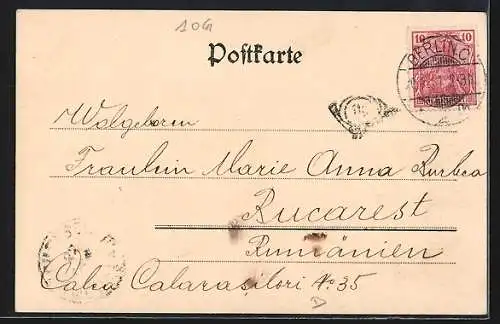 10G
Postkarte
10 10
BERLIN.C.
Wolgeboren
Fraulein Marie Anna Burbea
Bucarest
Rumänien
Calea Calarasilori No 35